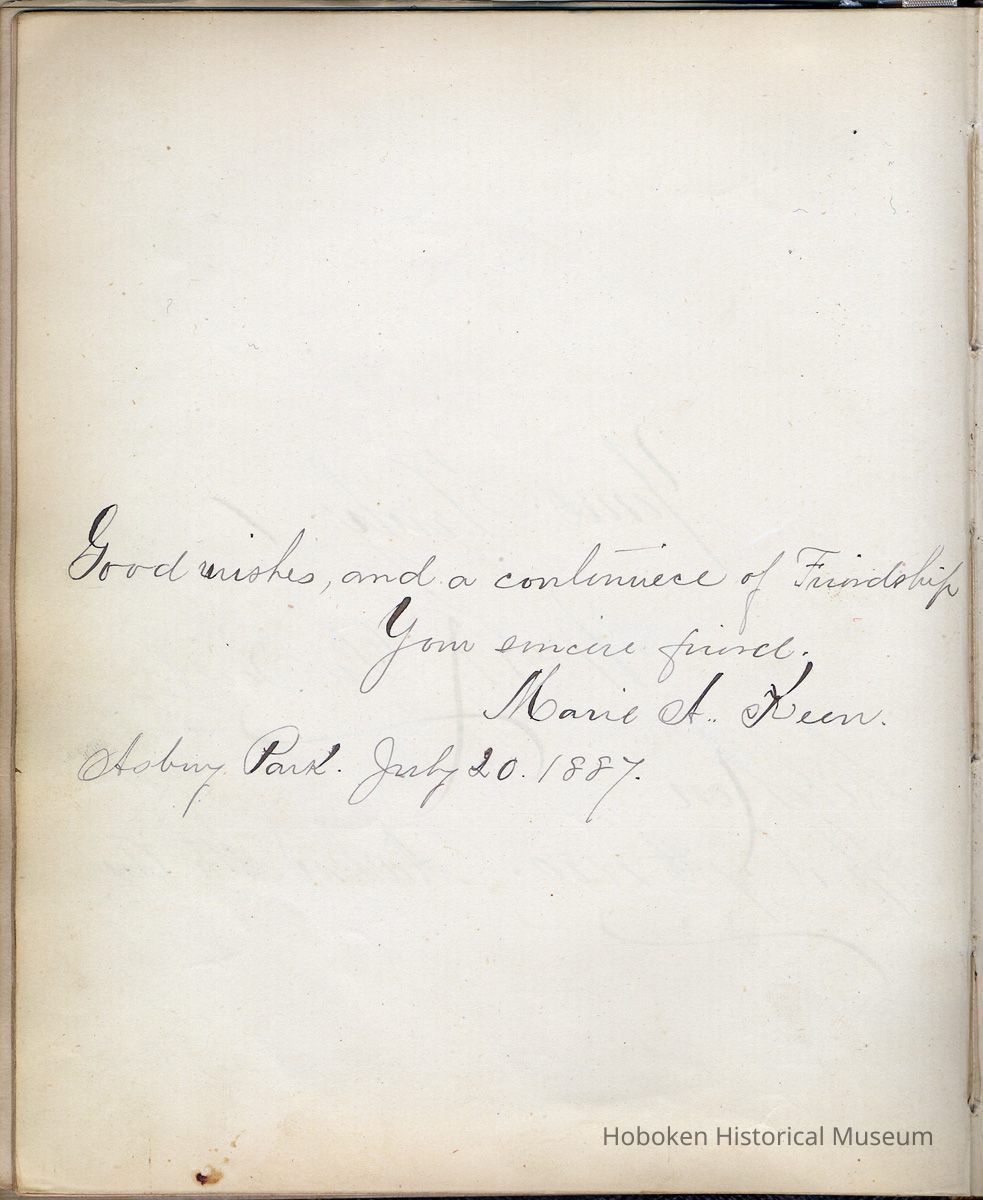 Good wishes, and a continuece of Friendship
Your sincere friend.
Marie A. Keen.
Asbury Park. July 20. 1887.
Hoboken Historical Museum